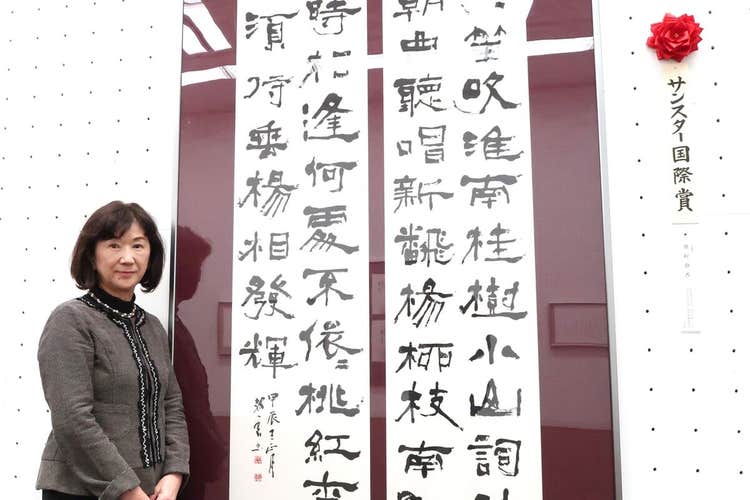 笛吹淮南桂樹小山詞
朝曲聽唱新飜楊桺枝南
時相逢何處不依〻桃紅李
須待垂楊相發輝
甲辰
サンスター国際賞